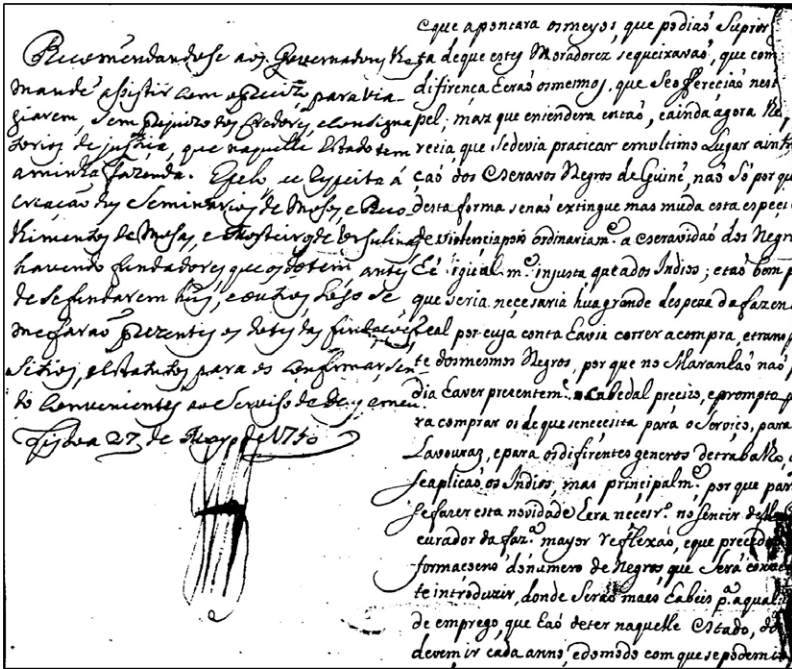 Recomendandose aos Governadores Ro
mande assistir com o preciso para via
jarem, sem prejuizo dos Credores, e consigna
torios de justiça, que naquelle Estado tem
a minha fazenda. E pelo q̃ respeita á
creação dos Seminarios de Mosos e Reco
himentos de Mosas, e Mosteiros de Ursulinas
havendo fundadores que os dotem antes
de se fundarem huns, e outros
me farão prezentes os dotes das fundações
Sitios, e estatutos para os confirmar, sen
do convenientes ao Serviso de Ds. e meu
Lisboa 27 de de 1750
e que apontara os meyos, que podiaõ Suprir
ta de que estes Moradorez se queixavaõ, que com
difirença eraõ os mesmos, que se offereciaõ nes
pel, maz que entendera entaõ, e ainda agora
recia, que se devia practicar em ultimo Lugar a int
çaõ dos Escravos Negros de Guiné, naõ Só por qu
desta forma se naõ extingue mas muda esta especi
de violencia pois ordinariam.e a escravidaõ dos Negr
hé igual m.e injusta que a dos Indios; e taõ bem p
que seria necesaria hua grande despeza da fazen
real por cuja conta havia correr a compra, e transp
te dos mesmos Negros, por que no Maranhaõ naõ p
dia haver prezentem.e o Cabedal precizo, e prompto p
ra comprar os de que senecesita para o Serviço, para
Lavouraz, e para os difirentes generos de trabalho,
se aplicaõ os Indios, mas principalm.e por que par
se fazer esta novidade hera necesr.o no Sentir do
curador da faz.a mayor reflexaõ, e que preceda
formaceno do numero de Negros que Será
te introduzir, donde Seraõ maes habeis p.a aquel
de emprego, que haõ de ter naquelle Estado,
devem ir cada anno, e do modo com que se podem